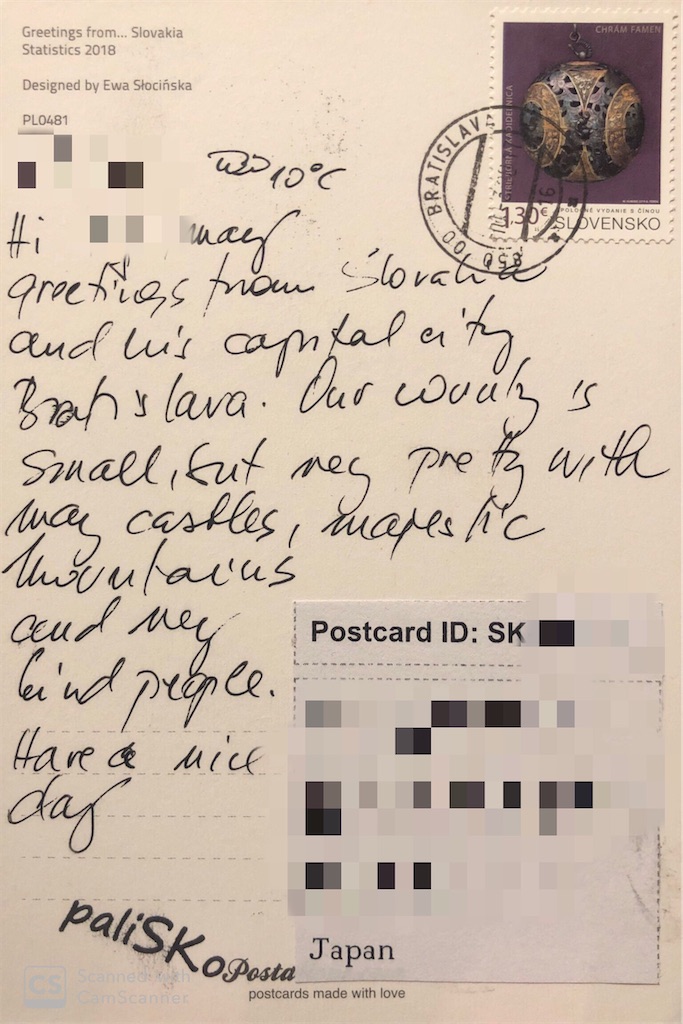 Greetings from... Slovakia
Statistics 2018
Designed by Ewa Słocińska
PL0481
CHRÁM FAMEN
STRIEBORNÁ KADIDELNICA
1.30€
SPOLOČNÉ VYDANIE S ČÍNOU
SLOVENSKO
850 00 BRATISLAVA
10°C
Hi many
greetings from Slovakia
and his capital city
Bratislava. Our country is
small, but very pretty with
many castles, majestic
mountains
and very
kind people.
Have a nice
day
Postcard ID: SK
Japan
paliSKo
Posta
postcards made with love
CS Scanned with
CamScanner